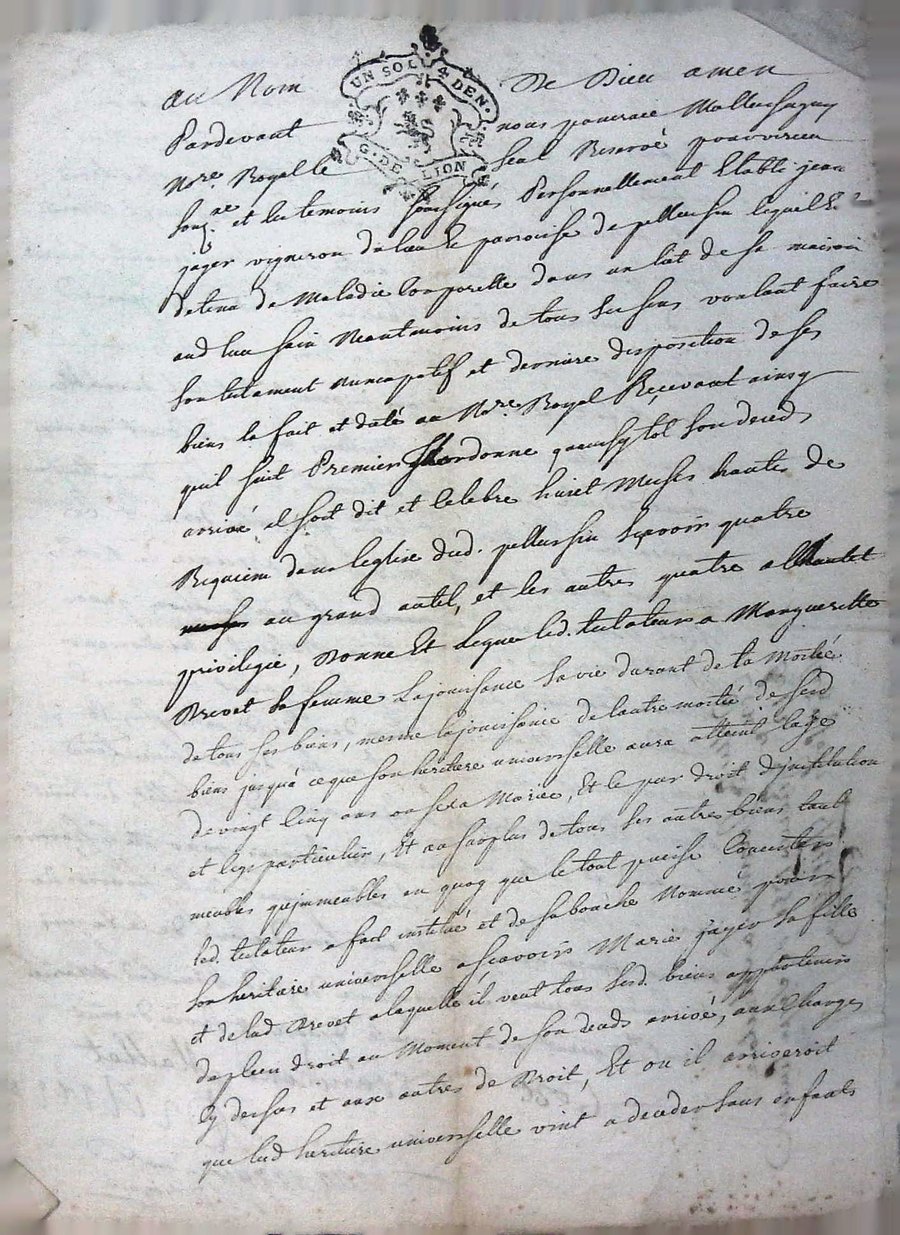 UN SOL 4 DEN.
G. DE LION
au Nom De Dieu amen
Pardevant nous
Nore. Royal le Seul Reservé pour
souz.ne et les temoins soussignés Personnellement Etabli jean
jager vigneron du lieu Et parroisse de pellussin lequel Et
detenu de Maladie Corporelle dans un lict de sa maison
aud lieu sain Neantmoins de tous ses sens voulant faire
son testament nuncupatif et derniere disposition de ses
biens la fait et daté au Nore. Royal Recevant ainsy
quil suit Premier ordonne quaussytot son deceds
arrivé il soit dit et celebre huict Messes hautes de
Requiem dans leglise dud. pellussin scavoir quatre
au grand autel, et les autres quatre a lhautel
privilegié, Donne Et legue led. testateur a Marguerette
Brevet sa femme la jouissance sa vie durant de la Moitié
de tous ses biens, mesme la jouissance de lautre moitié de sesd
biens jusquà ce que son heritiere universelle aura atteint lage
de vingt Cinq ans ou sera Mariée, Et ce par droit d'jnstitution
et legs particulier, Et au surplus de tous ses autres biens tant
meubles qujmmeubles en quoy que le tout puisse Concister
led. testateur a fait institué et de sa bouche Nommé pour
son heritiere universelle ascavoir Marie jager sa fille
et de lad Brevet a laquelle il veut tous sesd. biens appartenir
de plein droit au Moment de son deceds arrivé, aux Charges
Cy dessus et aux autres de Droit, Et ou il arriveroit
que lad heritiere universelle vint a deceder sans enfants